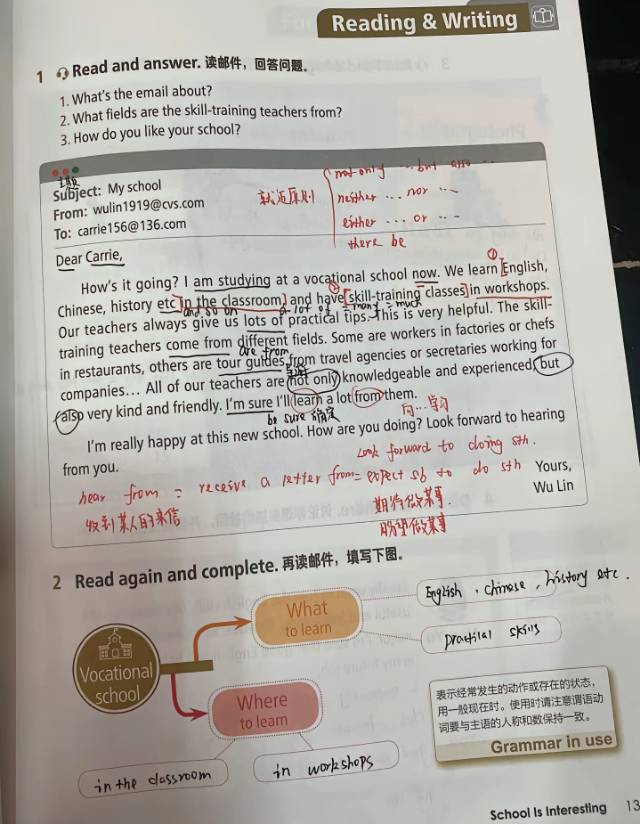 Reading & Writing
1 Read and answer. 读邮件，回答问题。
1. What's the email about?
2. What fields are the skill-training teachers from?
3. How do you like your school?
not only ... but also ...
主题
Subject: My school
就近原则
neither ... nor ...
From: wulin1919@cvs.com
either ... or ...
To: carrie156@136.com
there be
Dear Carrie,
①
How's it going? I am studying at a vocational school now. We learn English,
②
Chinese, history etc in the classroom, and have skill-training classes in workshops.
and so on a lot of = many = much
Our teachers always give us lots of practical tips. This is very helpful. The skill-
training teachers come from different fields. Some are workers in factories or chefs
are from
in restaurants, others are tour guides from travel agencies or secretaries working for
companies... All of our teachers are not only knowledgeable and experienced, but
also very kind and friendly. I'm sure I'll learn a lot from them.
be sure 确定
向...学习
I'm really happy at this new school. How are you doing? Look forward to hearing
Look forward to doing sth.
from you.
hear from = receive a letter from
= expect sb to do sth
Yours,
收到某人的来信
期待做某事
Wu Lin
盼望做某事
2 Read again and complete. 再读邮件，填写下图。
English, chinese, history etc.
What
to learn
practilal skills
Vocational
school
Where
to learn
in the classroom
in workshops
表示经常发生的动作或存在的状态，
用一般现在时。使用时请注意谓语动
词要与主语的人称和数保持一致。
Grammar in use
School Is Interesting 13